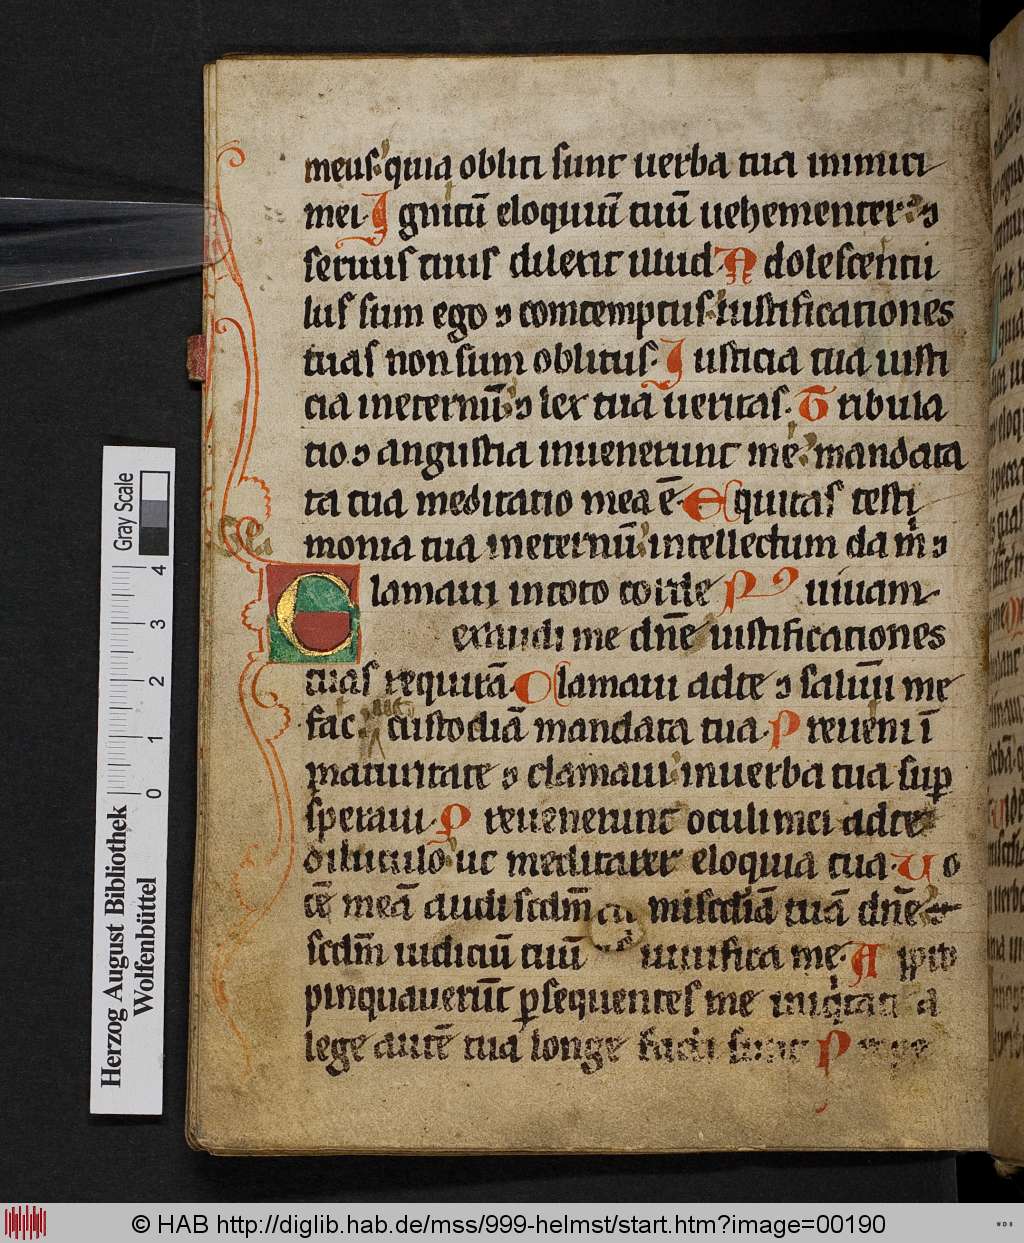 meus quia obliti sunt uerba tua inimici
mei. Ignitū eloquiū tuū uehementer ꝛ
seruus tuus dilexit illud. Adolescentu
lus sum ego ꝛ comtemptus iustificationes
tuas non sum oblitus. Iusticia tua iusti
cia ineternū ꝛ lex tua ueritas. Tribula
tio ꝛ angustia inuenerunt me mandata
ta tua meditatio mea ē. Equitas testi
monia tua ineternū intellectum da m ꝛ
Clamaui intoto corde uiuam
exaudi me dn̄e iustificationes
tuas requirā. Clamaui adte ꝛ saluū me
fac custodiā mandata tua. Preueni ī
maturitate ꝛ clamaui inuerba tua sup
speraui. Preuenerunt oculi mei adte
diluculo ut meditarer eloquia tua. Uo
cē meā audi scdm̄ miscdiā tuā dn̄e
scdm̄ iudiciū tuū uiuifica me. Appro
pinquauerūt psequentes me iniqtati a
lege autē tua longe facti sunt
Gray Scale
4 3 2 1 0
Herzog August Bibliothek
Wolfenbüttel
© HAB http://diglib.hab.de/mss/999-helmst/start.htm?image=00190